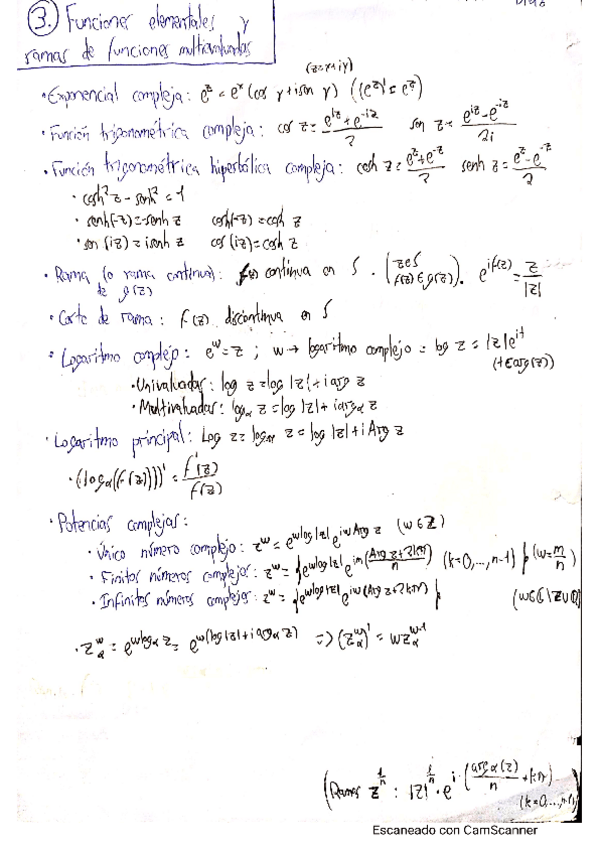 3. Funciones elementales y
ramas de funciones multivaluadas
(z=x+iy)
· Exponencial compleja: e^z = e^x (cos y + i sen y) ((e^z)' = e^z)
· Función trigonométrica compleja: cos z = (e^{iz} + e^{-iz})/2 sen z = (e^{iz} - e^{-iz})/2i
· Función trigonométrica hiperbólica compleja: cosh z = (e^z + e^{-z})/2 senh z = (e^z - e^{-z})/2
· cosh² z - senh² z = 1
· senh(-z) = -senh z cosh(-z) = cosh z
· sen(iz) = i senh z cos(iz) = cosh z
· Rama (o rama continua): f(z) continua en S · (z∈S f(z)∈g(z)). e^{if(z)} = z/|z|
de g(z)
· Corte de rama: f(z) discontinua en S
· Logaritmo complejo: e^w = z ; w → logaritmo complejo = log z = |z|e^{it}
(t∈arg(z))
· Univaluadas: log z = log |z| + i arg z
· Multivaluadas: log_α z = log |z| + i arg_α z
· Logaritmo principal: Log z = log z = log |z| + i Arg z
· (log_α(f(z)))' = f'(z)/f(z)
· Potencias complejas:
· Único número complejo: z^w = e^{w log |z|} e^{iw Arg z} (w∈Z)
· Finitos números complejos: z^w = {e^{w log |z|} e^{im(Arg z + 2kπ / n)} (k=0,...,n-1)} (w = m/n)
· Infinitos números complejos: z^w = {e^{w log |z|} e^{iw(Arg z + 2kπ)}} (w∈C\Z∪Q)
· z_α^w = e^{w log_α z} = e^{w(log |z| + i arg_α z)} => (z_α^w)' = w z_α^{w-1}
(Ramas z^{1/n} : |z|^{1/n} · e^{i·(arg_α(z)/n + kπ)}
(k=0,...,n-1)
Escaneado con CamScanner